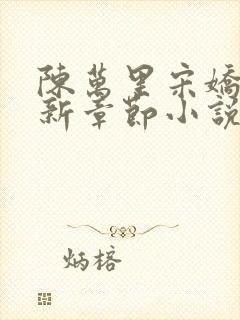 陳萬里宋嬌
新章節小說
炳榕